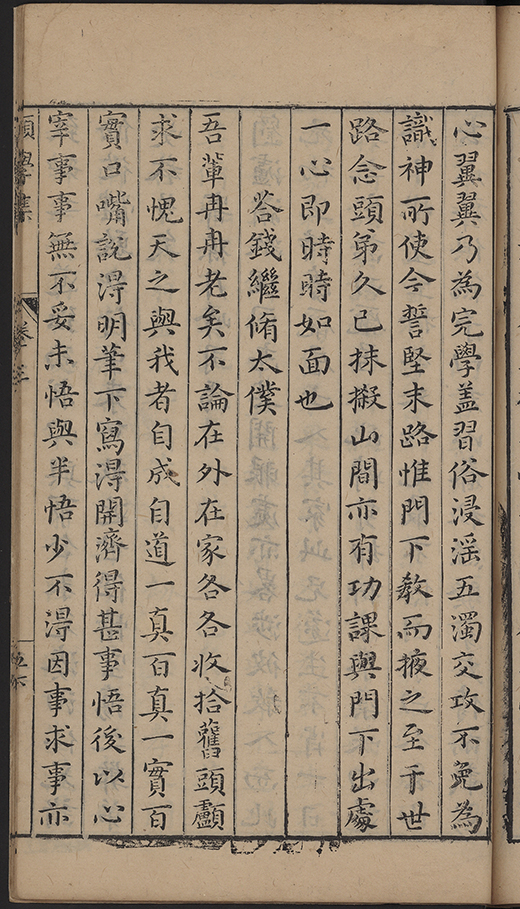 心翼翼乃為完學盖習俗浸淫五濁交攻不免為
識神所使今誓堅末路惟門下教而掖之至于世
路念頭第久已抹摋山間亦有功課與門下出處
一心即時時如面也
答錢繼脩太僕
吾輩冉冉老矣不論在外在家各各收拾舊頭顱
求不愧天之與我者自成自道一真百真一實百
實口嘴說得明筆下寫得開濟得甚事悟後以心
宰事事無不妥未悟與半悟少不得因事求事亦